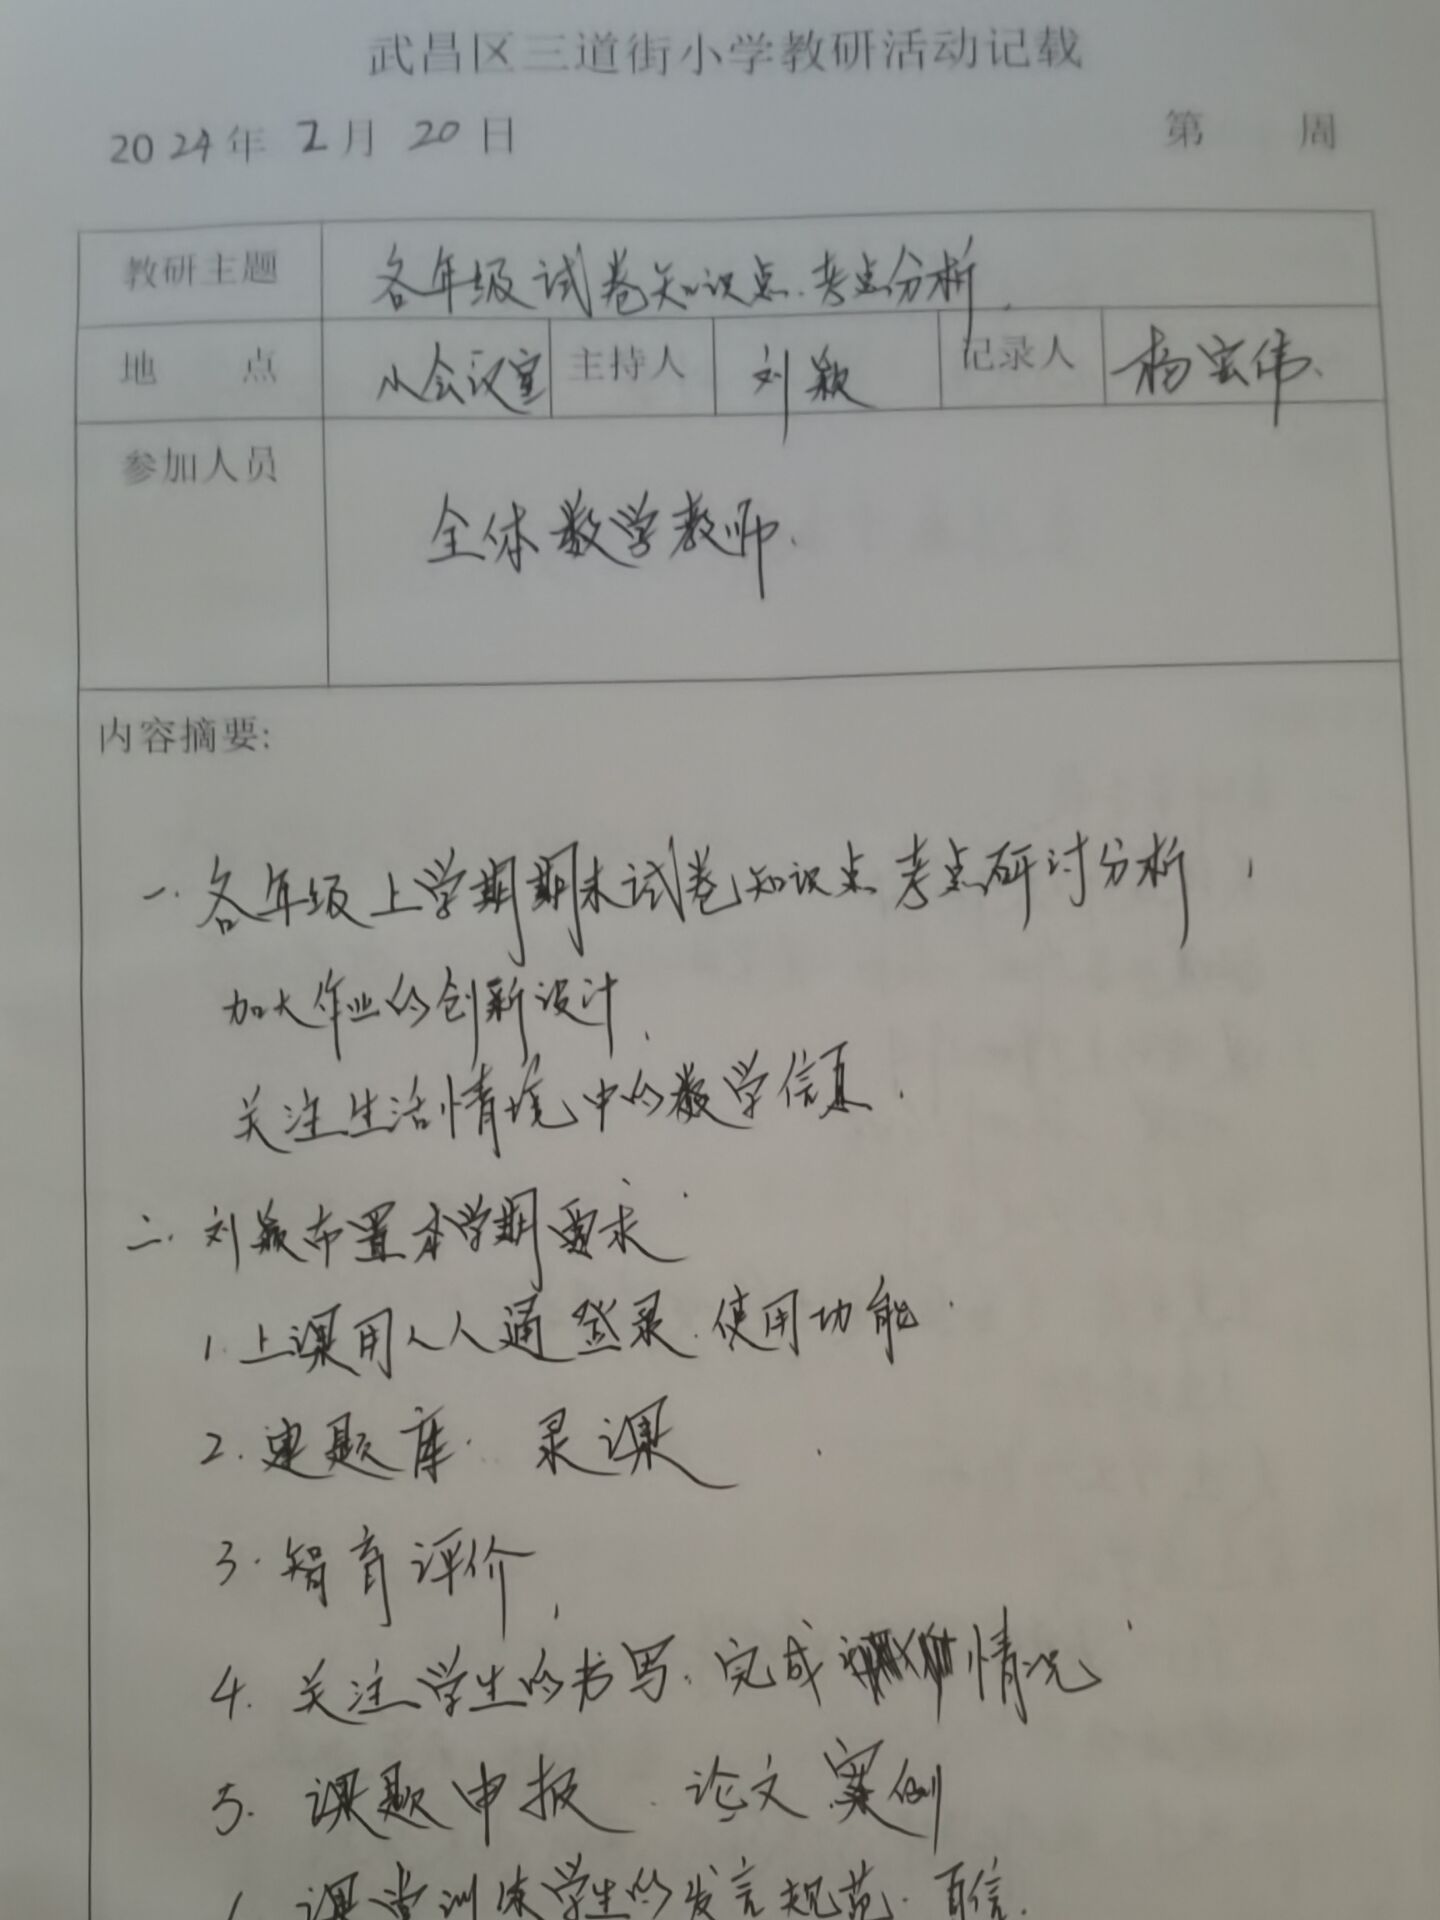 武昌区三道街小学教研活动记载
2024年 2月 20日 第 周
教研主题 各年级试卷知识点、考点分析.
地 点 小会议室 主持人 刘颖 记录人 杨宏伟、
参加人员
全体数学教师.
内容摘要:
一.各年级上学期期末试卷知识点考点研讨分析,
加大作业的创新设计,
关注生活情境中的数学信息.
二.刘颖布置本学期要求
1.上课用人人通登录.使用功能.
2.建题库. 录课
3.智育评价,
4.关注学生的书写.完成 情况
5.课题申报.论文案例
6.课堂训练学生的发言规范.自信.